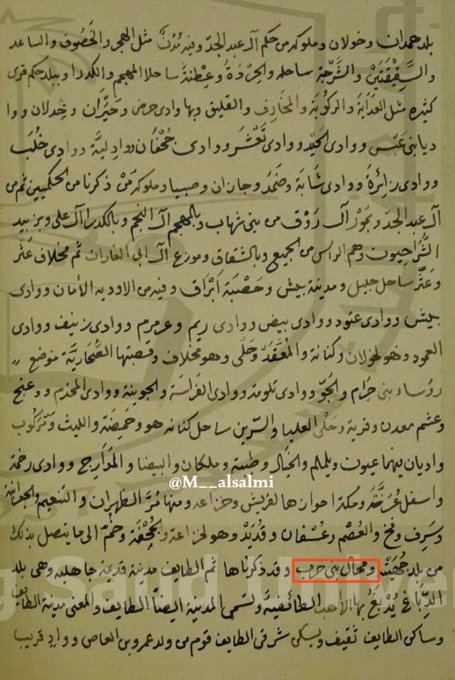 بلد همدان وخولان وملوكه من حكم آل عبد الجد وفيه مدن مثل الهجر والخصوف والساعد
والسقيفتين والشرجة ساحله والحردة وعطنة ساحلا المهجم والكدرا وببلد حكم قرى
كثيره مثل العداية والركوبة والمخارف والقليق وبها وادى حرض وحيران وخدلان ووا
ديا بنى عبس ووادى الحيد ووادى تعشر ووادى جحفان ووادٍ ليّة ووادى خلب
ووادى زايرة ووادى شابة وضمد وجازان وصبيا وملوكه من ذكرنا من الحكميين ثم من
آل عبد الجد وبمور آل روق من بنى شهاب وبالمهجم آل النجم وبالكدرا آل على وبزبيد
الشراحيون وهم الراس من الجميع وبالشقاق وموزع آل ابى الغارات ثم مخلاف عثر
وعثر ساحل جليل ومدينة بيش وحصبة ابراق وفيه من الاودية الأمان ووادى
بيش ووادى عتود ووادى بيض ووادى ريم وعرمرم ووادى زنيف ووادى
العمود وهو لخولان وكنانة والمعقد وحلى وهو مخلاف وقصبتها الصحارية موضع
رؤساء بنى حرام والجو ووادى تلومة ووادى الفراسة والجوينة ووادى المحرم ودعنج
وعشم معدن وقرية وحلى العليا والسرين ساحل كنانه هو وحميضة والليث ومركوب
واديان فيهما عيون ويلملم والخيال وطبية وملكان والبيضا والمدارج ووادى رحمة
واسفل عرنة ومكة احوازها لقريش وخزاعه ومنها مر الظهران والتنعيم والجعرانة
وسرف وفخ والعصم وعسفان وقديد وهو لخزاعة والجحفة وخم الى ما يتصل بذلك
من بلد جهينة ومحال بنى حرب وقد ذكرناها ثم الطايف مدينة قديمة جاهليه وهى بلد
الدباغ يدبغ بها الأهب الطائفية وتسمى المدينة ايضا الطايف والمعنى مدينة الطايف
وساكن الطايف ثقيف ويسكن شرقى الطايف قوم من ولد عمرو بن العاص ووادٍ قريب
@M__alsalmi